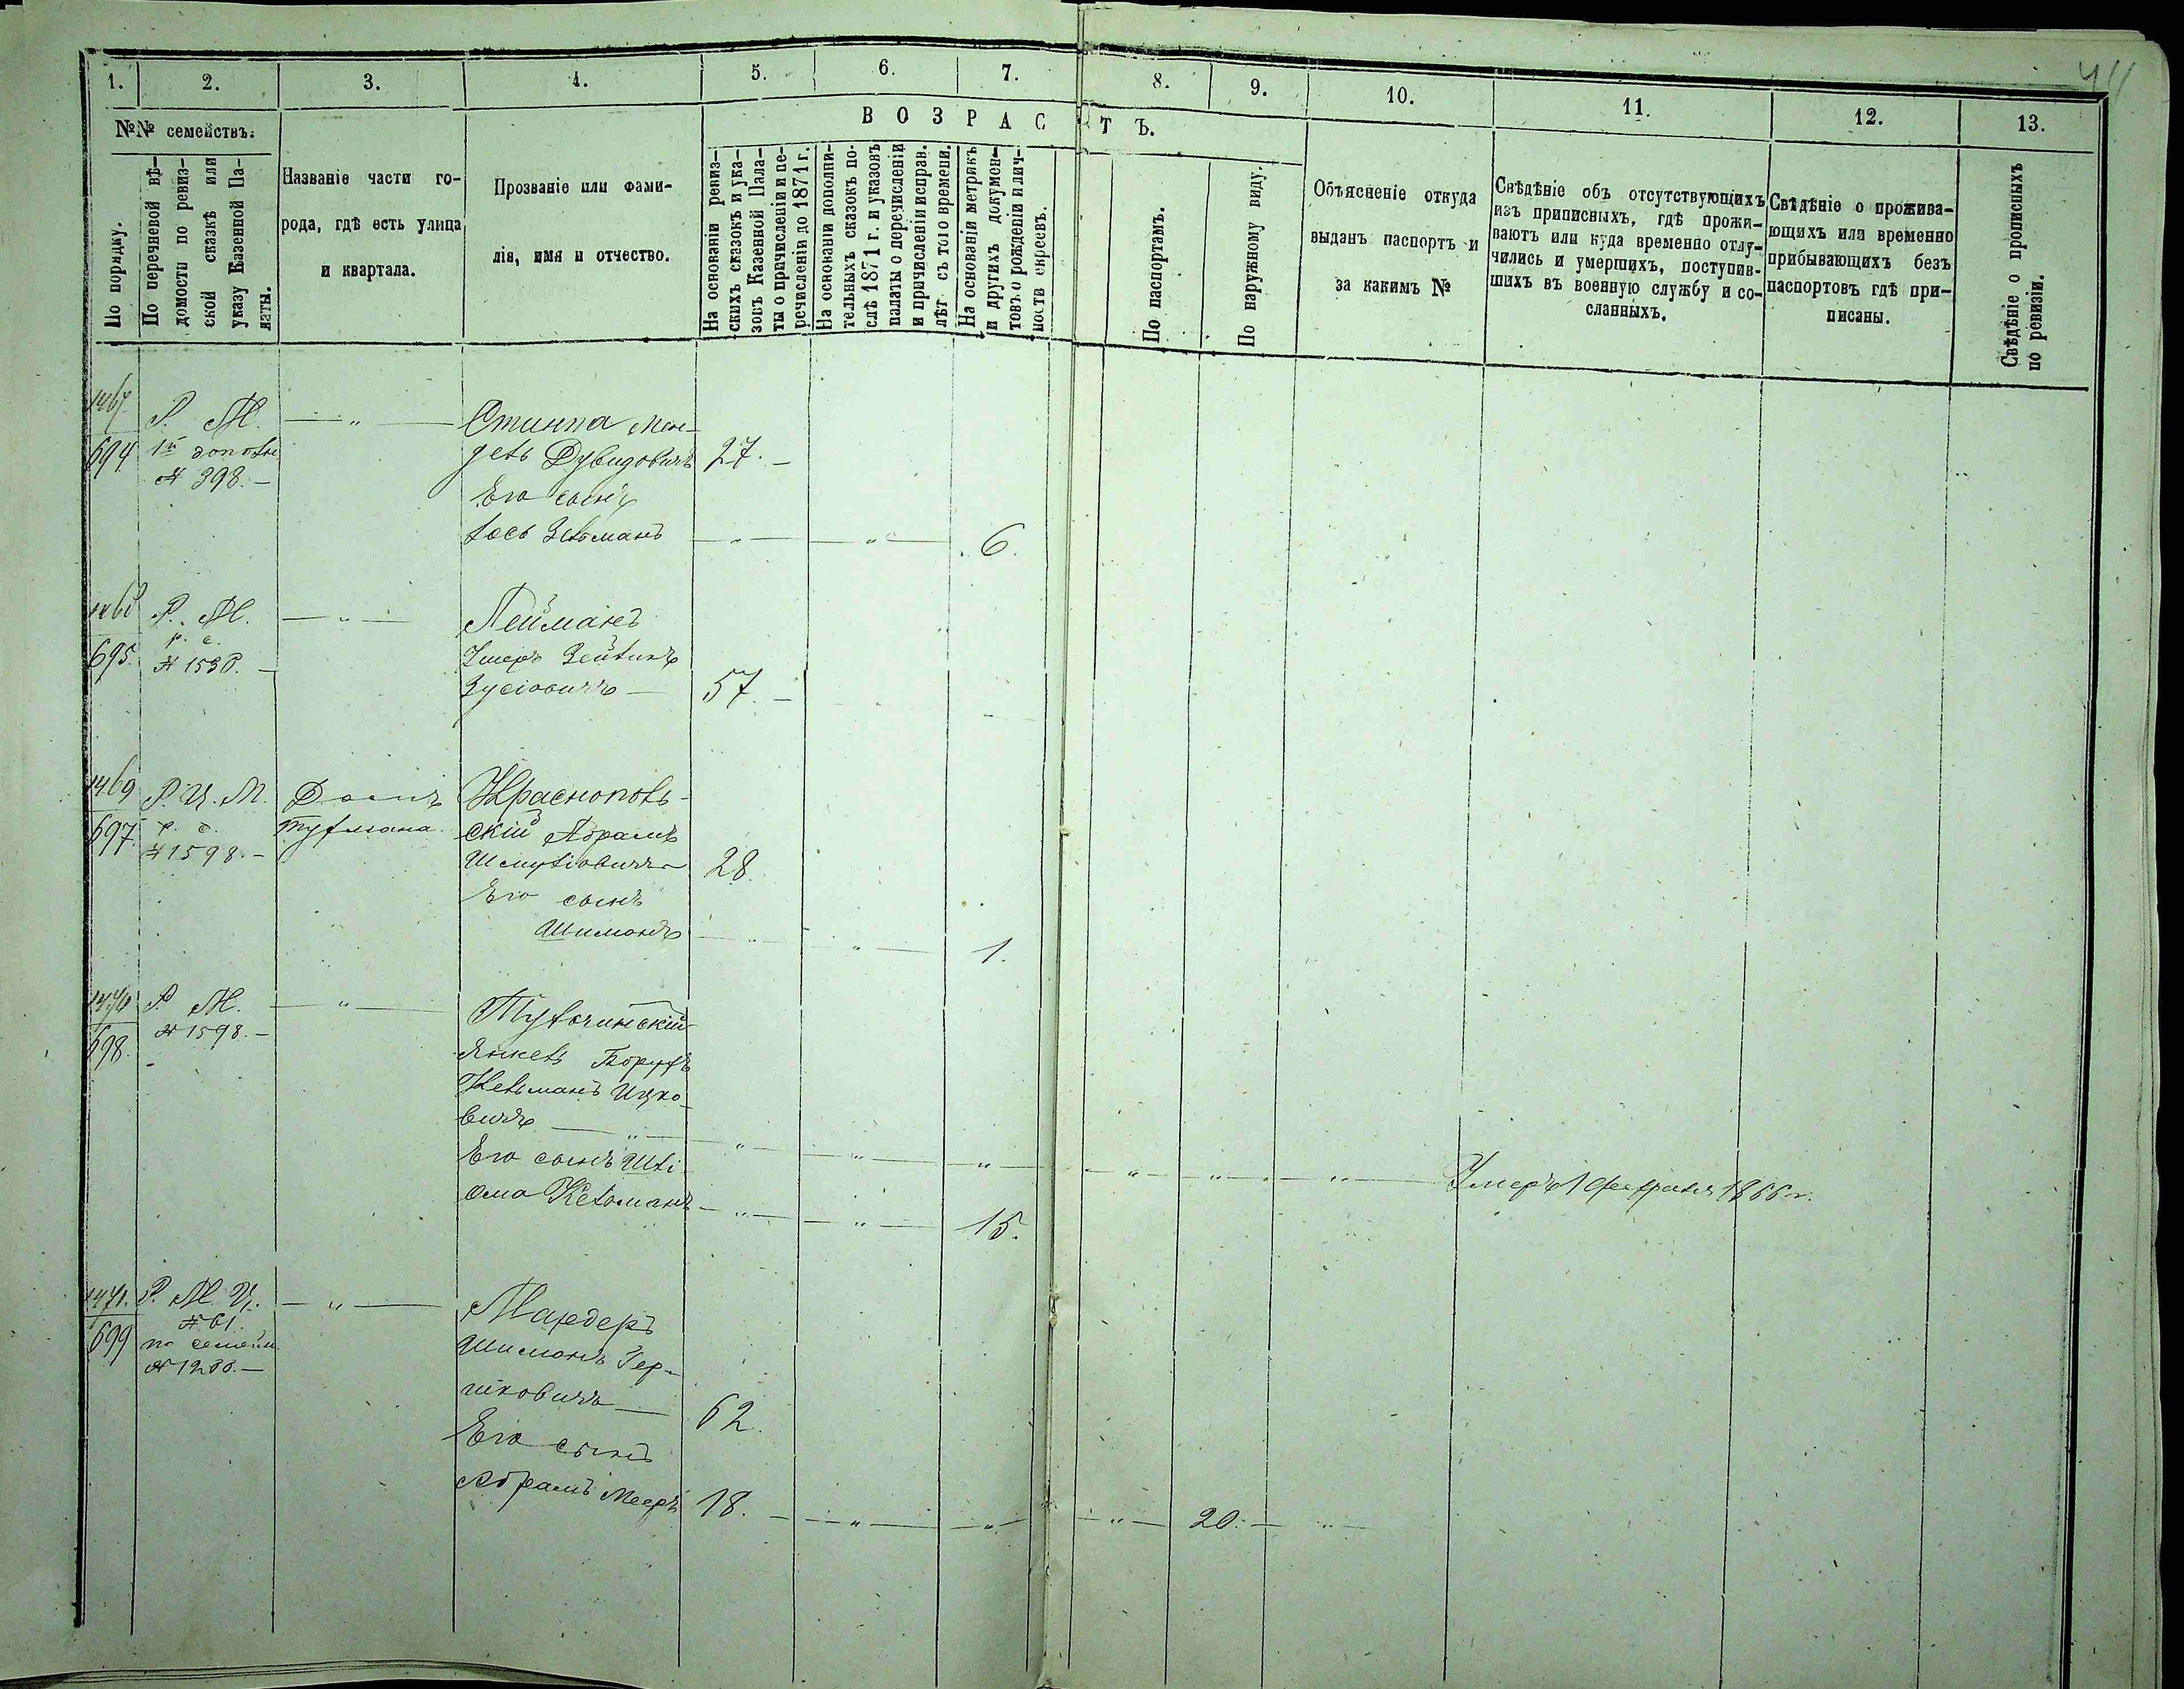 411
1. 2. 3. 4. 5. 6. 7. 8. 9. 10. 11. 12. 13.
№№ семействъ:
По порядку.
По перечневой вѣ-
домости по ревиз-
ской сказкѣ или
указу Казенной Па-
латы.
Названіе части го-
рода, гдѣ есть улица
и квартала.
Прозваніе или фами-
лія, имя и отчество.
ВОЗРАСТЪ.
На основаніи ревиз-
скихъ сказокъ и ука-
зовъ Казенной Пала-
ты о причисленіи и пе-
речисленіи до 1871 г.
На основаніи дополни-
тельныхъ сказокъ по-
слѣ 1871 г. и указовъ
палаты о перечисленіи
и причисленіи исправ.
лѣт съ того времени.
На основаніи метрикъ
и другихъ докумен-
товъ о рожденіи и лич-
ности евреевъ.
По паспортамъ.
По наружному виду.
Объясненіе откуда
выданъ паспортъ и
за какимъ №
Свѣдѣніе объ отсутствующихъ
изъ приписныхъ, гдѣ прожи-
ваютъ или куда временно отлу-
чились и умершихъ, поступив-
шихъ въ военную службу и со-
сланныхъ.
Свѣдѣніе о прожива-
ющихъ или временно
прибывающихъ безъ
паспортовъ гдѣ при-
писаны.
Свѣдѣніе о прописныхъ
по ревизіи.
1467 Р. М. — " —
694 № 398. —
Мен-
дель Дувидовичъ 27. —
Его сынъ
Зельманъ — " — " — 6.
1468 Р. М. — " — Лейманъ
695. р. с. № 1530. —
Зусіовичъ — 57. —
1469 Р. Ц. М. Домъ Краснополь-
697. р. с. скій Абрамъ
№ 1598. — Шмуліовичъ 28.
Его сынъ
Шимонъ — " — " — 1.
1470 Р. М. — " — Тульчинскій
698. № 1598. — Янкель Борухъ
Кельманъ Ицко-
вичъ — " — " — " — " — " — " — " — Умеръ 1 февраля 1866 г.
Его сынъ Шлі-
ома Кельманъ — " — " — 15.
1471. Р. М. Ц. — " — Мандеръ
699 № 61. Шимонъ Гер-
по семейн. шковичъ — 62.
№ 1280. — Его сынъ
Абрамъ Мееръ 18. — " — " — " — 20. — " —